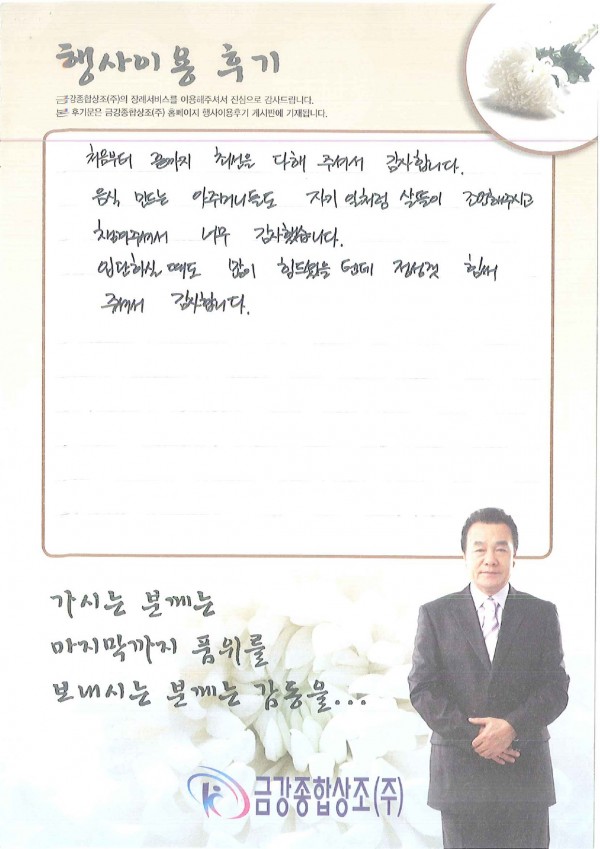 행사이용 후기
금강종합상조(주)의 장례서비스를 이용해주셔서 진심으로 감사드립니다.
본 후기문은 금강종합상조(주) 홈페이지 행사이용후기 게시판에 기재됩니다.
처음부터 끝까지 최선을 다해 주셔서 감사합니다.
음식 만드는 아주머니들도 자기 일처럼 살뜰이 조언해주시고
챙겨주셔서 너무 감사했습니다.
입단하실 때도 많이 힘드셨을 텐데 정성껏 힘써
주셔서 감사합니다.
가시는 분께는
마지막까지 품위를
보내시는 분께는 감동을...
금강종합상조(주)